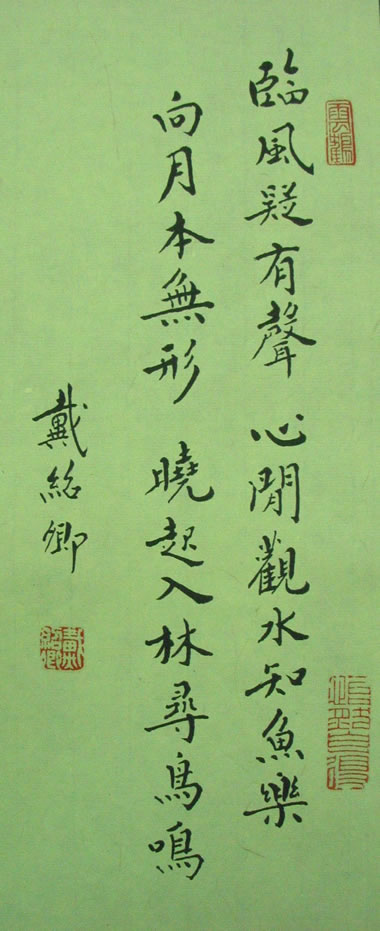 臨風疑有聲 心閒觀水知魚樂
向月本無形 曉起入林尋鳥鳴
戴紹卿
雲鶴
戴紹卿